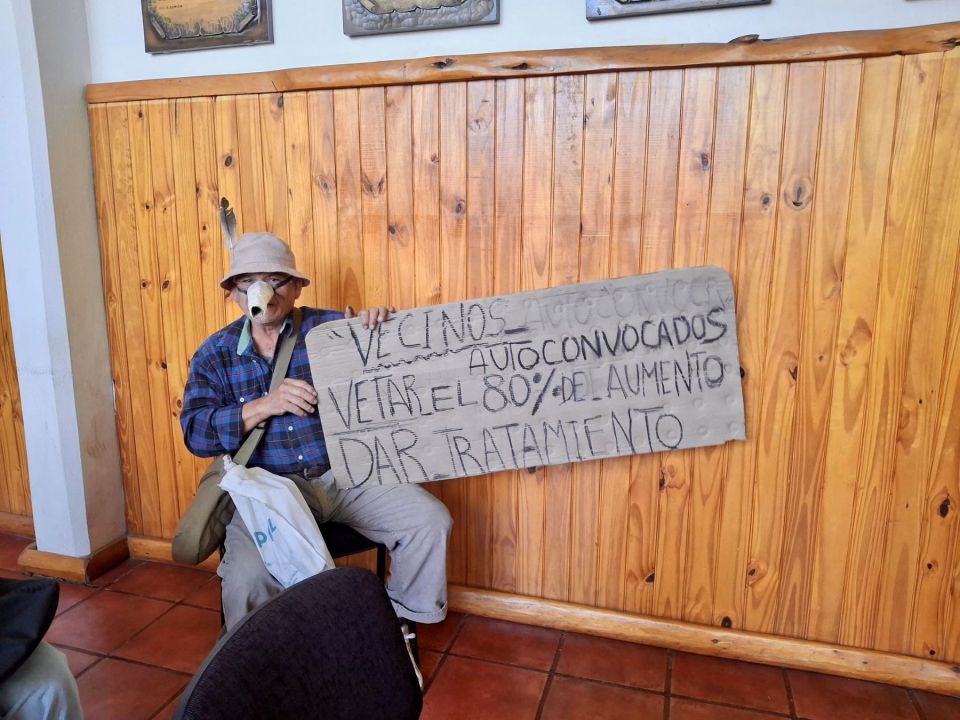 "VECINOS_ AUTOCONVOCA
AUTOCONVOCADOS
VETAR EL 80% DEL AUMENTO
DAR_TRATAMIENTO